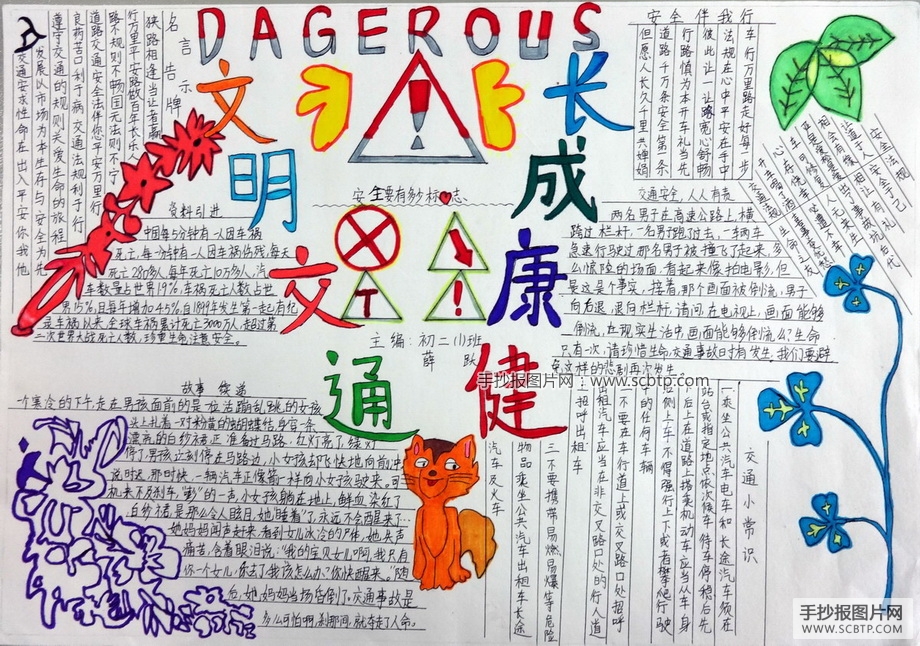 DAGEROUS
文明交通
长成康健
名言告示牌
狭路相逢当让者赢
行万里平安路做百年长乐人
路不规则不畅国无法则不宁
道路交通安全法伴您平安万里行
良药苦口利于病交通法规利于行
遵守交通的规则关爱生命的旅程
发展以市场为本生存与安全为先
安全伴我行
车行万里路走好每一步
法规在心中平安在手中
彼此让一让路宽心舒畅
行路慎为本开车礼当先
道路千万条安全第一条
但愿人长久千里共婵娟
安全要有多少标志
T
!
主编:初二(1)班
薛 跃
资料引进
中国每5分钟有一人因车祸
死亡,每一分钟有一人因车祸伤残,每天
死亡280多人,每年死亡10万多人,汽
车数量占世界19%,车祸死亡人数占世
界15%,且每年增加4.5%,自1899年发生第一起有纪
录车祸以来,全球车祸累计死亡3000万人,超过第
二次世界大战死亡人数,珍重生命注意安全。
交通安全,人人有责
两名男子在高速公路上横
跨过栏杆,一名男子跑过去,一辆车
急速行驶过那名男子被撞飞了起来,多
么惊险的场面,看起来像拍电影,但
是这是个事实,接着,那个画面被倒流,男子
向后退,退向栏杆,请问在电视上,画面能够
倒流,在现实生活中,画面能够倒流么?生命
只有一次,请珍惜生命,交通事故日时有发生,我们要避
免这样的悲剧再次发生
手抄报图片网:www.scbtp.com
故事 传递
一个寒冷的下午,走在男孩面前的是一位活蹦乱跳的女孩
头上扎着一对粉嘟的蝴蝶结,身穿一条
漂亮的白纱裙正准备过马路,红灯亮了,绿灯
停了,男孩立刻停在马路边,小女孩却飞快地向前冲
说时迟,那时快,一辆汽车正像箭一样向小女孩驶来。司
机来不及刹车,"嘭"的一声,小女孩躺在地上,鲜血染红了
白纱裙,是那么令人瞩目,她"睡着"了,永远不会再醒来了…
她妈妈闻声赶来,看到女儿冰冷的尸体,她失声
痛苦,含着眼泪说:"我的宝贝女儿啊,我只有
你一个女儿,你去了我该怎么办?你快醒来。"随
后,她妈妈当场昏倒了。交通事故是
多么可怕啊,刹那间,就夺走了人命。
交通小常识
一乘坐公共汽车电车和长途汽车须在
站台或指定地点依次候车待车停稳后先
下后上不在道路上搭乘机动车应当从车身
右侧上车不得强行上下或者攀爬行驶
中的任何车辆
二不要在车行道上或交叉路口处招呼
出租汽车应当在非交叉路口处的行人道
上招呼出租车
三不要携带易燃易爆等危险
物品乘坐公共汽车出租车长途
汽车及火车
手抄报图片网
WWW.SCBTP.COM